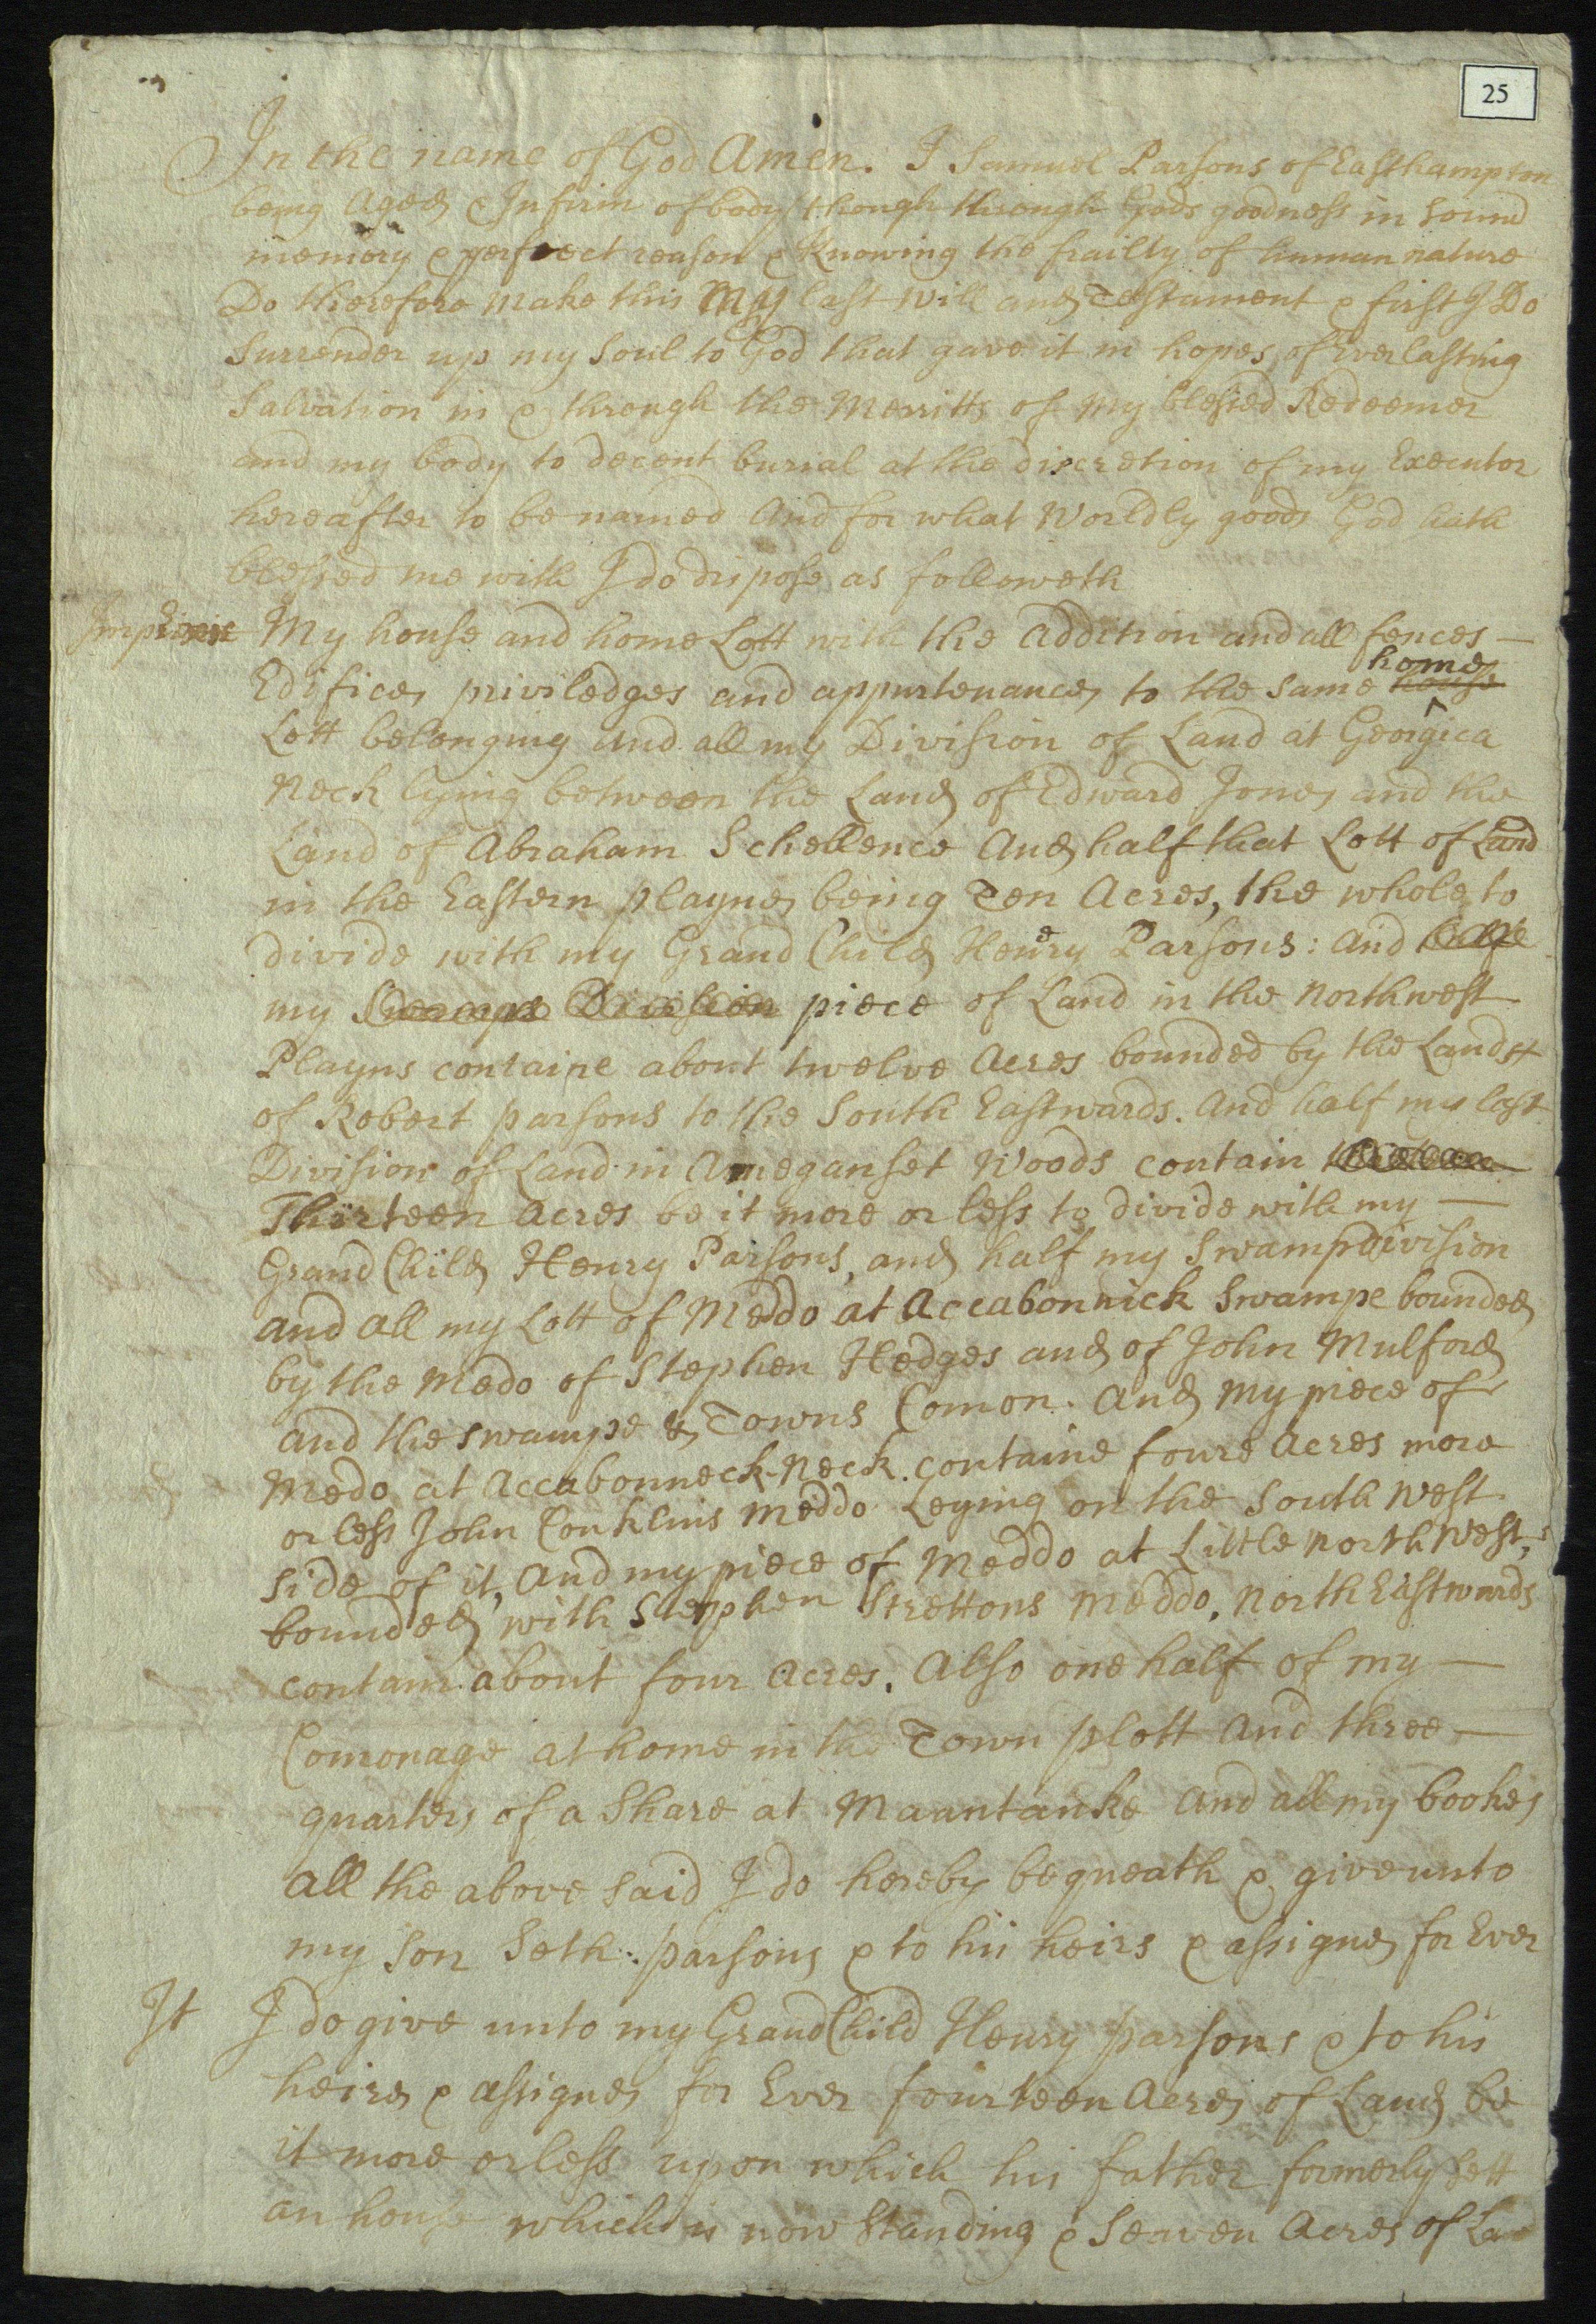 25
In the name of God Amen. I Samuel Parsons of Easthampton
being Aged & Infirm of body though through Gods goodness in sound
memory & perfect reason & knowing the frailty of human nature
Do therefore make this My last will and Testament & first I Do
Surrender up my Soul to God that gave it in hopes of Everlasting
Salvation in & through the Merritts of my blessed Redeemer
and my body to decent burial at the discretion of my Executor
hereafter to be named And for what Worldly goods God hath
blessed me with I do dispose as followeth
My house and home Lott with the addition and all fences —
Edifices priviledges and appurtenances to the same house home
Lott belonging and all my Division of Land at Georgica
Neck lying between the Land of Edward Jones and the
Land of Abraham Schellence And half that Lott of Land
in the Eastern playnes being Ten Acres, the whole to
divide with my Grand Child Henery Parsons: and halfe
my Swampe Division piece of Land in the northwest
Playns containe about twelve Acres bounded by the Lands
of Robert parsons to the South Eastwards. And half my last
Division of Land in Ameganset Woods contain
Thirteen Acres be it more or less to divide with my —
Grand Child Henry Parsons, and half my Swamp division
and all my Lott of Meddo at Accabonnick Swampe bounded
by the Medo of Stephen Hedges and of John Mulford
and the swampe & Towns Comon. And My piece of
Medo at Accabonneck-Neck. containe foure Acres more
or less John Conklins Meddo Leying on the South West
side of it, And my piece of Meddo at Little North West,
bounded with Stephen Strettons Meddo, North Eastwards
contain about four Acres. Also one half of my —
Comonage at home in the Town plott and three —
quarters of a Share at Maantauke and all my bookes
all the above said I do hereby bequeath & give unto
my Son Seth parsons & to his heirs & assignes for Ever
It I do give unto my Grand Child Henry parsons & to his
heires & assignes for Ever fourteen Acres of Land be
it more or less upon which his father formerly sett
an house which is now Standing & Seaven Acres of Land